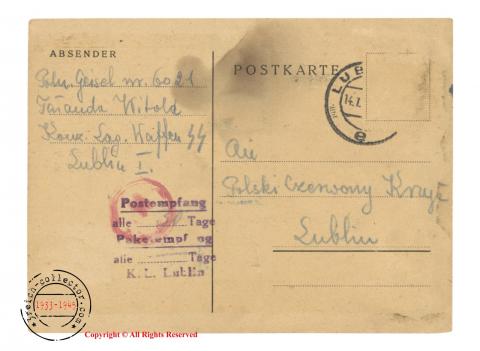 ABSENDER
Geisel nr. 6021
Witold
Konz. Lag. Waffen SS
Lublin I.
POSTKARTE
LUB
14.7.
e
An
Polski Czerwony Krzyż
Lublin
Postempfang
alle ........ Tage
Paketempfang
alle ........ Tage
K. L. Lublin
1933-1945
Copyright © All Rights Reserved